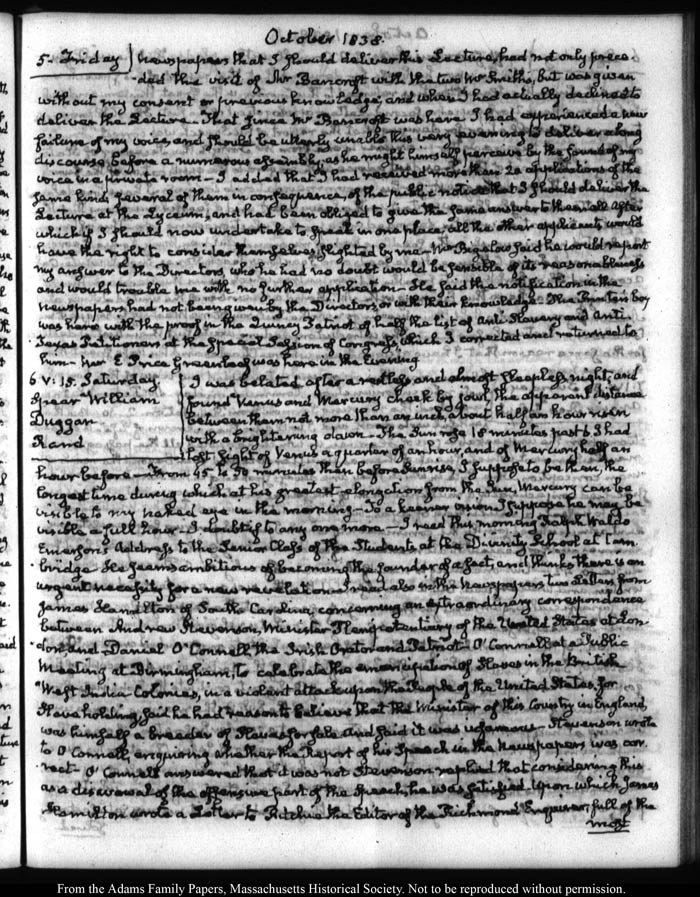 October 1838.
5. Friday newspapers that I should deliver this Lecture, had not only prece-
ded the visit of Mr Bancroft with the two Mr Smiths, but was given
without my consent or previous knowledge, and when I had actually declined to
deliver the Lecture. That since Mr Bancroft was here I had experienced a new
failure of my voice, and should be utterly unable this very evening to deliver a long
discourse before a numerous assembly, as he might himself perceive by the sound of my
voice in a private room— I added that I had received more than 20 applications of the
same kind, several of them in consequence, of the public notice that I should deliver the
Lecture at the Lyceum, and had been obliged to give the same answer to them all After
which if I should now undertake to speak in one place, all the other applicants would
have the right to consider themselves slighted by me— Mr Bigelow said he would report
my answer to the Directors, who he had no doubt would be sensible of its reasonableness
and would trouble me with no further application— He said the notification in the
newspapers had not been given by the Directors, or with their knowledge— The Printer's boy
was here with the proof in the Quincy Patriot of half the list of Anti-Slavery and Anti
Texas Petitioners at the Special Session of Congress, which I corrected and returned to
him— Mr E Price Greenleaf was here in the Evening
6. V: 15. Saturday I was belated after a restless and almost sleepless night, and
Spear William found Venus and Mercury cheek by jowl, the apparent distance
Duggan between them not more than an inch, about half an hour risen
Rand with a brightening dawn— The Sun rose 18 minutes past 6 I had
lost sight of Venus a quarter of an hour, and of Mercury half an
hour before— From 45 to 30 minutes then before sunrise, I suppose to be then, the
longest time during which at his greatest elongation from the Sun, Mercury can be
visible to my naked eye in the morning— To a keener vision I suppose he may be
visible a full hour— I doubt if to any one more— I read this morning Ralph Waldo
Emerson's Address to the Senior Class of the Students, at the Divinity School at Cam-
bridge He seems ambitious of becoming the founder of a sect, and thinks there is an
urgent necessity for a new revelation— I read also in the Newspapers two Letters from
James Hamilton of South Carolina, concerning an extraordinary correspondence
between Andrew Stevenson, Minister Plenipotentiary of the United States at Lon-
don, and Daniel O'Connell the Irish Orator and Patriot— O'Connell at a Public
Meeting at Birmingham, to celebrate the emancipation of Slaves in the British
West India Colonies, in a violent attack upon the People of the United States, for
Slave holding, said he had reason to believe that the Minister of this Country in England
was himself a breeder of Slaves for sale and said it was infamous— Stevenson wrote
to O'Connell, enquiring whether the Report of his Speech in the Newspapers was cor-
rect— O'Connell answered that it was not Stevenson replied that considering this
as a disavowal of the offensive part of the Speech, he was satisfied Upon which James
Hamilton wrote a Letter to Ritchie the Editor of the Richmond Enquirer, full of the
most
From the Adams Family Papers, Massachusetts Historical Society. Not to be reproduced without permission.